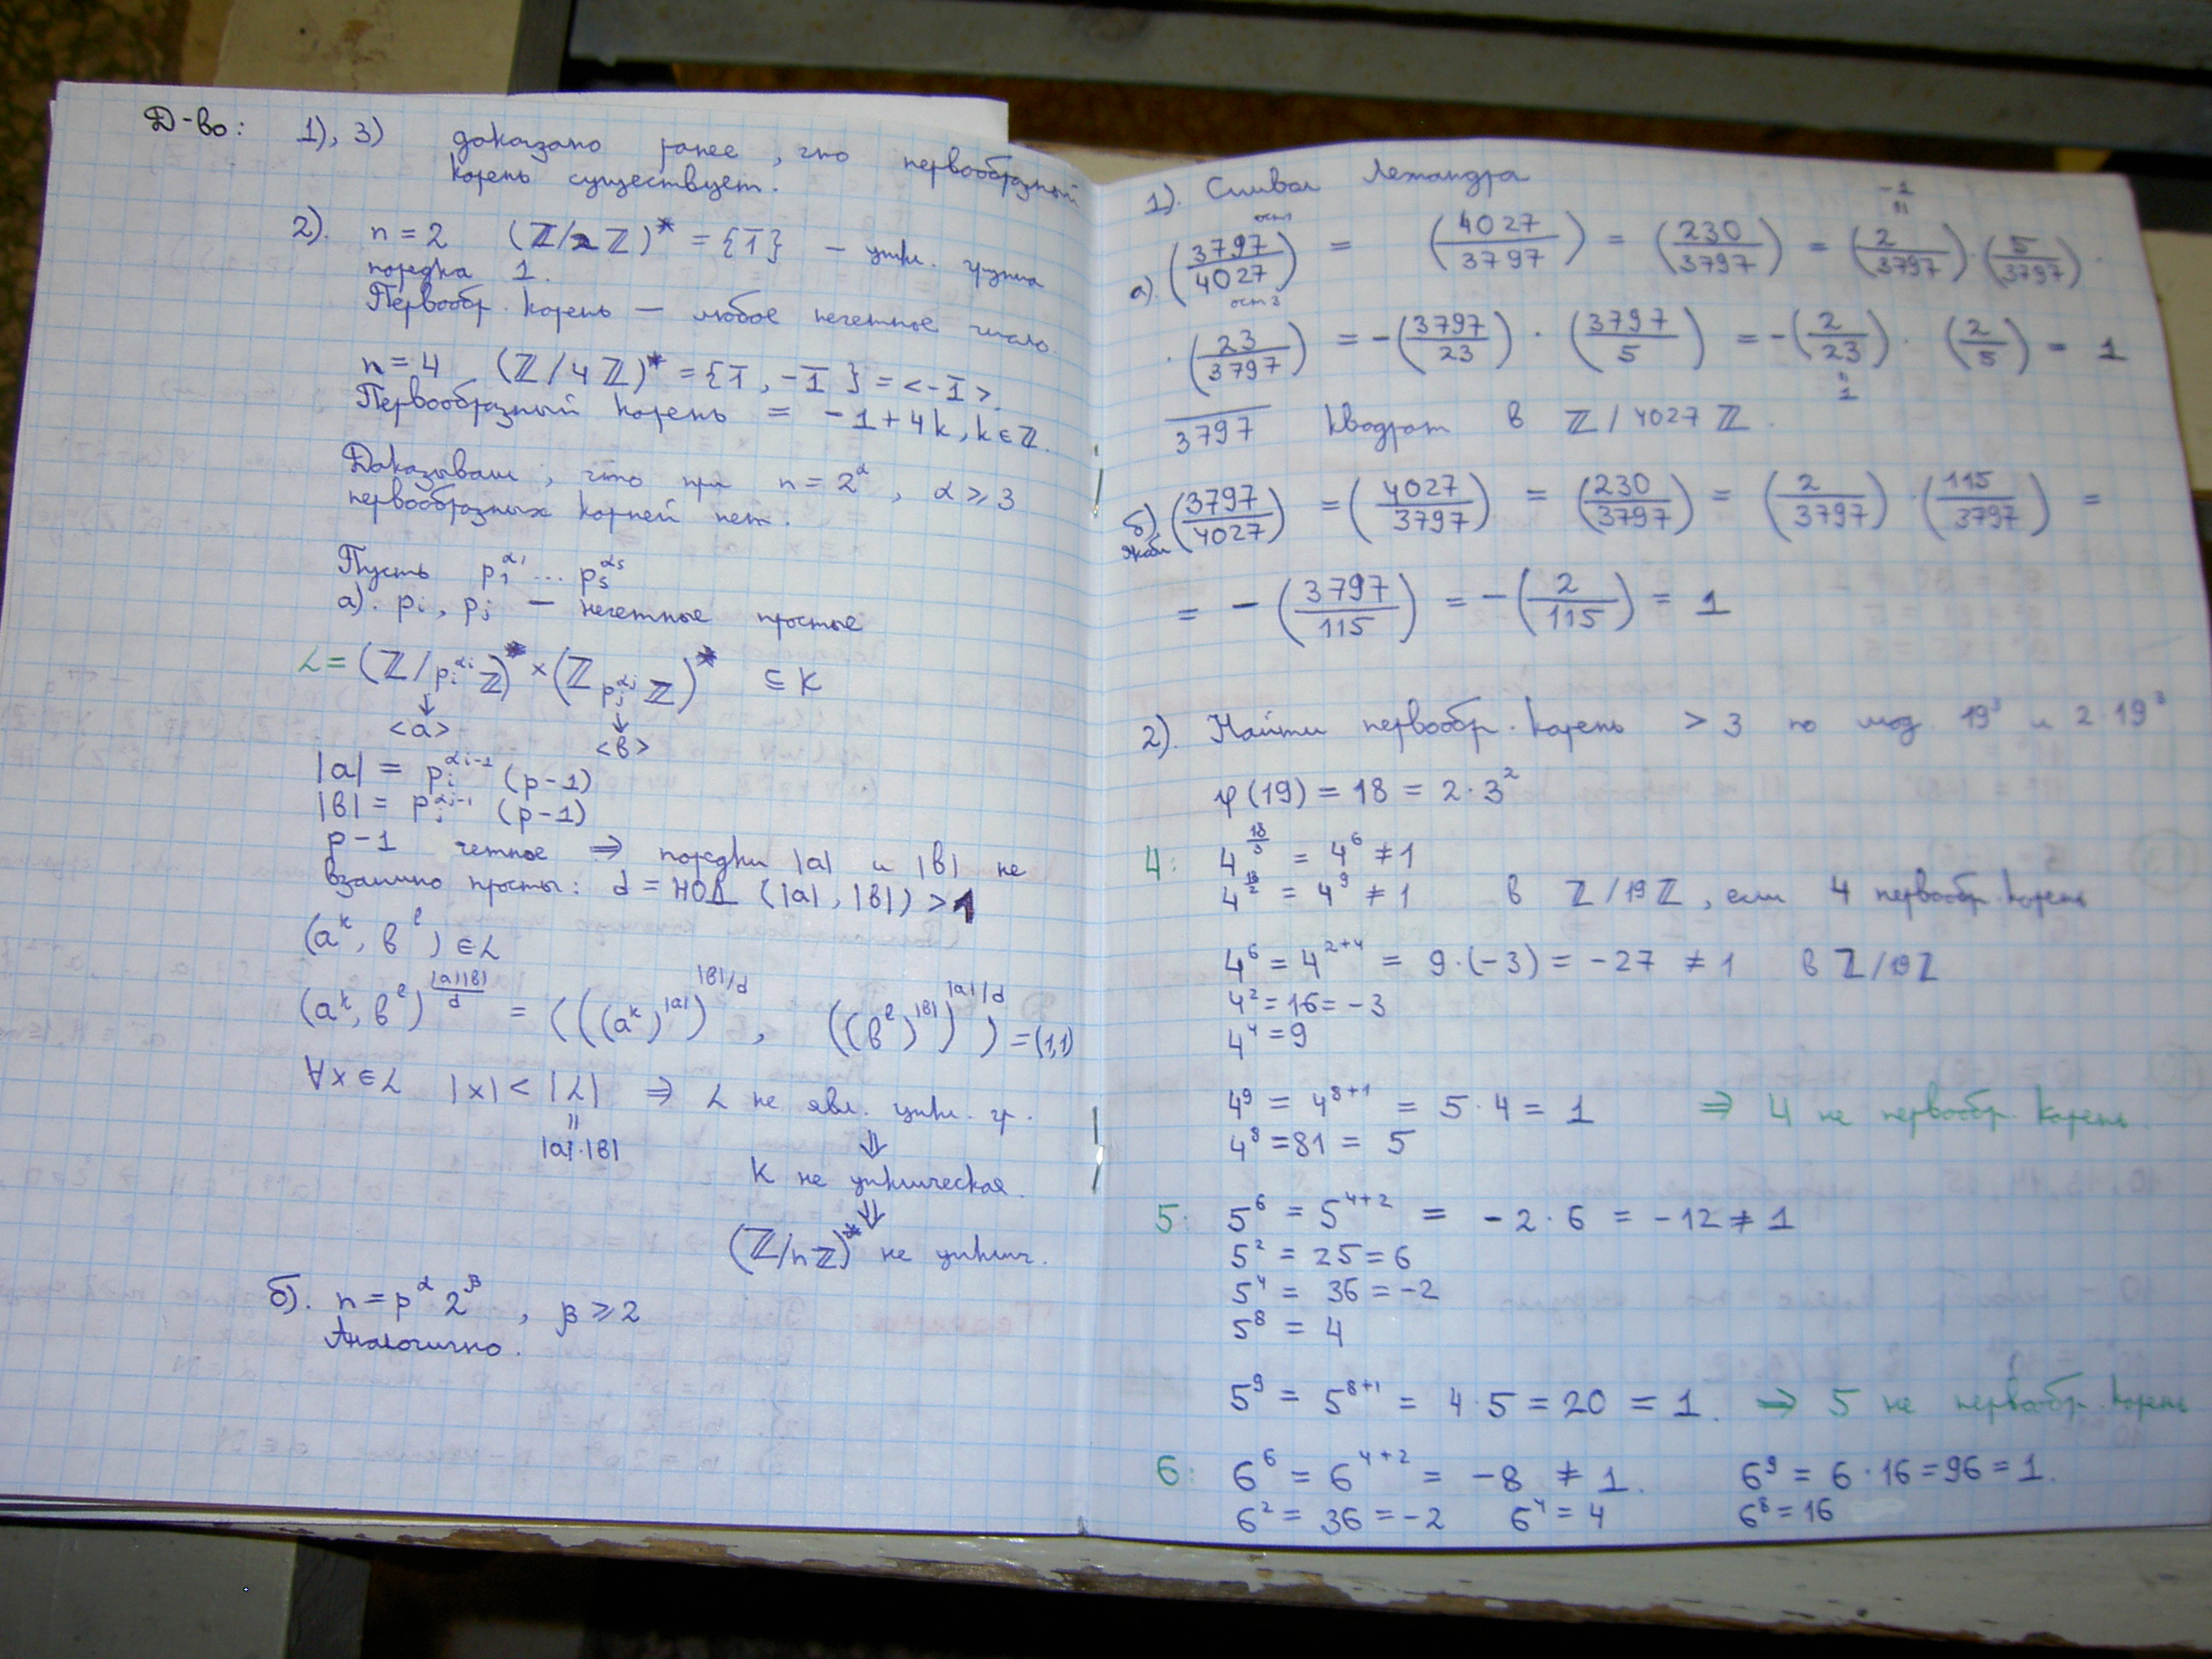 Д-во: 1), 3) доказано ранее, что первообразный
корень существует.
2). n = 2 (ℤ/2ℤ)* = {1̄} – цикл. группа
порядка 1.
Первообр. корень – любое нечетное число.
n = 4 (ℤ/4ℤ)* = {1̄, -1̄} = <-1̄>.
Первообразный корень = -1+4k, k∈ℤ.
Доказываем, что при n = 2^α, α ≥ 3
первообразных корней нет.
Пусть p₁^α₁ ... pₛ^αₛ
а). pᵢ, pⱼ – нечетные простые
L = (ℤ/pᵢ^αᵢ ℤ)* × (ℤ pⱼ^αⱼ ℤ)* ⊆ K
↓ ↓
<a> <b>
|a| = pᵢ^(αᵢ-1) (p-1)
|b| = pⱼ^(αⱼ-1) (p-1)
p-1 четное ⇒ порядки |a| и |b| не
взаимно просты: d = НОД (|a|, |b|) > 1
(a^k, b^l) ∈ L
(a^k, b^l)^(|a||b|/d) = (((a^k)^|a|)^(|b|/d), ((b^l)^|b|)^(|a|/d)) = (1,1)
∀x∈L |x| < |L| ⇒ L не явл. цикл. гр.
|| ⇓
|a|·|b|
K не циклическая.
⇓
(ℤ/nℤ)* не циклич.
б). n = p^α 2^β, β ≥ 2
Аналогично.
1). Символ Лежандра
-1
ост 1 ||
а). (3797/4027) = (4027/3797) = (230/3797) = (2/3797)·(5/3797)·
ост 3
·(23/3797) = -(3797/23)·(3797/5) = -(2/23)·(2/5) = 1
||
1
3797 квадрат в ℤ/4027ℤ.
б) (3797/4027) = (4027/3797) = (230/3797) = (2/3797)·(115/3797) =
Якоби
= -(3797/115) = -(2/115) = 1
2). Найти первообр. корень > 3 по мод 19³ и 2·19³
φ(19) = 18 = 2·3²
4: 4^(18/3) = 4⁶ ≠ 1
4^(18/2) = 4⁹ ≠ 1 в ℤ/19ℤ, если 4 первообр. корень
4⁶ = 4²⁺⁴ = 9·(-3) = -27 ≠ 1 в ℤ/19ℤ
4² = 16 = -3
4⁴ = 9
4⁹ = 4⁸⁺¹ = 5·4 = 1 ⇒ 4 не первообр. корень.
4⁸ = 81 = 5
5: 5⁶ = 5⁴⁺² = -2·6 = -12 ≠ 1
5² = 25 = 6
5⁴ = 36 = -2
5⁸ = 4
5⁹ = 5⁸⁺¹ = 4·5 = 20 = 1. ⇒ 5 не первообр. корень
6: 6⁶ = 6⁴⁺² = -8 ≠ 1. 6⁹ = 6·16 = 96 = 1.
6² = 36 = -2 6⁴ = 4 6⁸ = 16